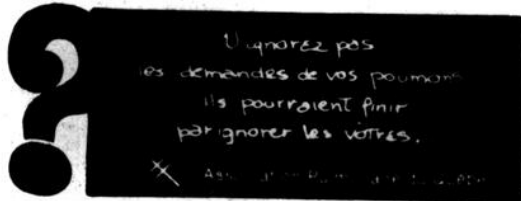 ?
N'ignorez pas
les demandes de vos poumons
ils pourraient finir
par ignorer les vôtres.